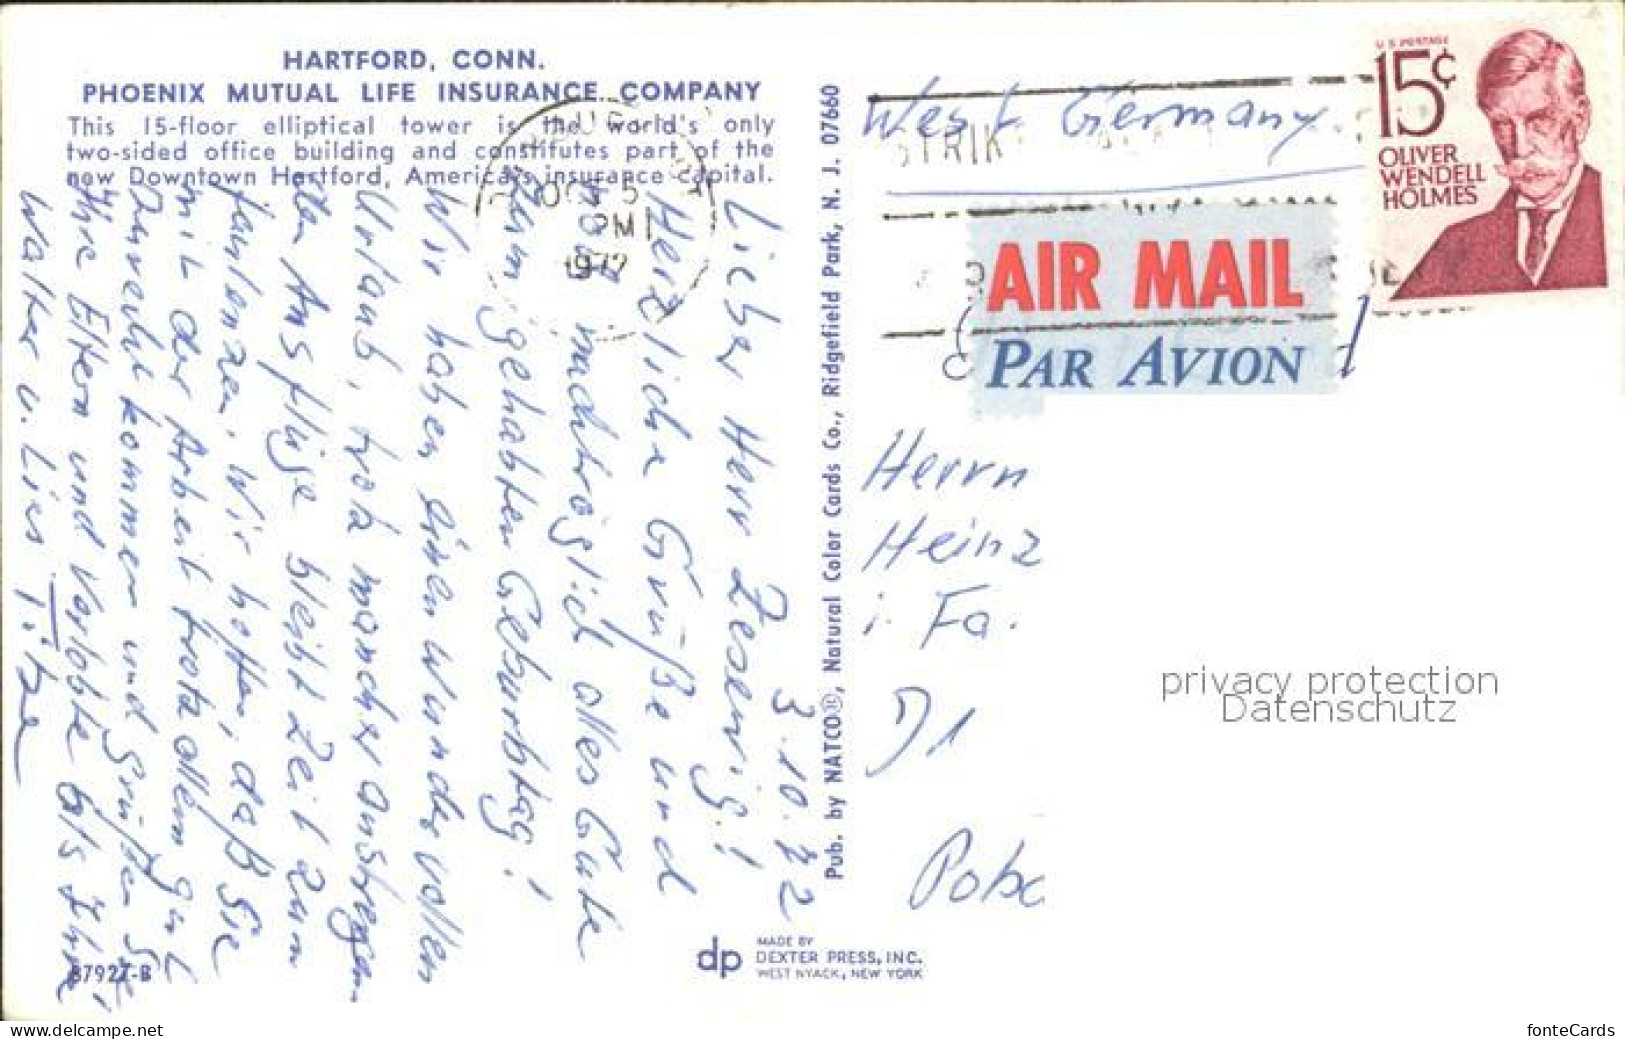 HARTFORD, CONN.
PHOENIX MUTUAL LIFE INSURANCE COMPANY
This 15-floor elliptical tower is the world's only
two-sided office building and constitutes part of the
new Downtown Hartford, America's insurance capital.
3.10.72
Lieber Herr Zesewig!
Herzliche Grüße und
noch nachträglich alles Gute
zum gehabten Geburtstag!
Wir haben einen wundervollen
Urlaub, trotz mancher anstrengen-
den Ausflüge bleibt Zeit zum
faulenzen. Wir hoffen, daß Sie
mit der Arbeit trotz allem gut
kommen und grüßen Sie,
Ihre Eltern und Verlobte als Ihre
Walter u. Lies
87927-B
Pub. by NATCO®, Natural Color Cards Co., Ridgefield Park, N. J. 07660
dp
MADE BY
DEXTER PRESS, INC.
WEST NYACK, NEW YORK
OCT 5
PM
1972
West Germany
U.S. POSTAGE
15¢
OLIVER
WENDELL
HOLMES
AIR MAIL
PAR AVION
Herrn
Heinz
i. Fa.
privacy protection
Datenschutz
www.delcampe.net
fonteCards